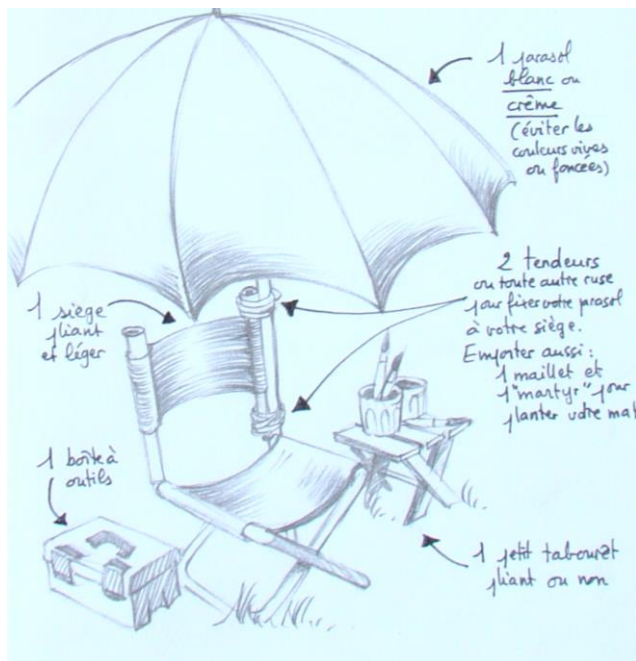 1 parasol
blanc ou
crême
(éviter les
couleurs vives
ou foncées)
2 tendeurs
ou toute autre ruse
pour fixer votre parasol
à votre siège.
Emporter aussi :
1 maillet et
1 "martyr" pour
planter votre mat
1 siège
pliant
et léger
1 boîte à
outils
1 petit tabouret
pliant ou non